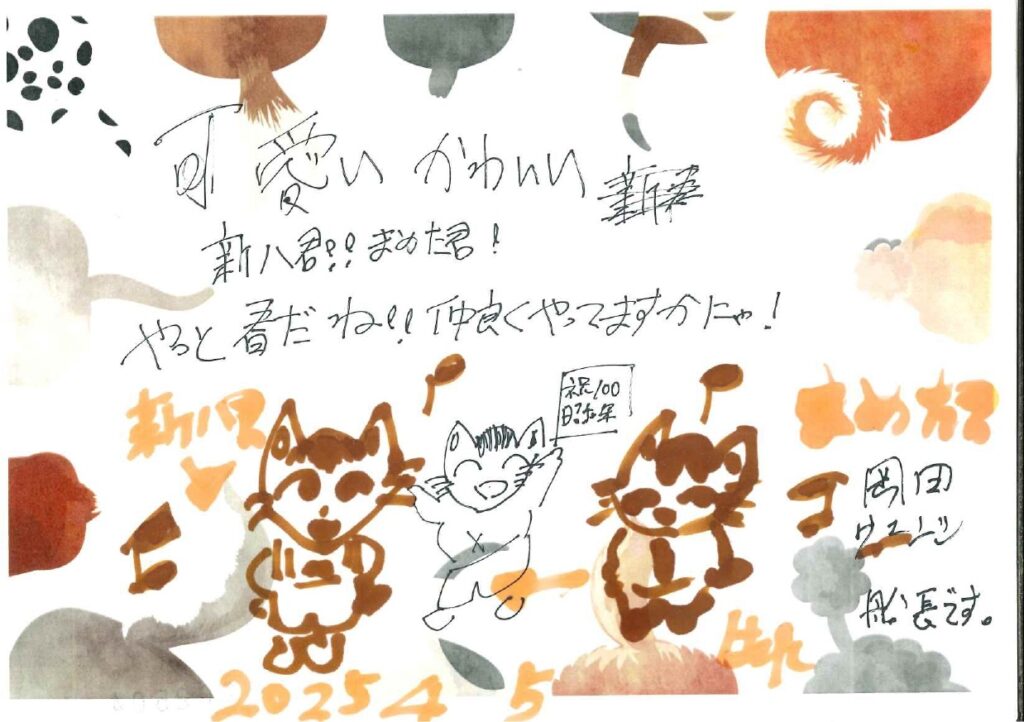 可愛い かわいい
新八君!!まめた君!
やっと春だね!!仲良くやってますかにゃ!
祝100
昭和年
新八君
まめた君
岡田
船長です。
2025 4 5